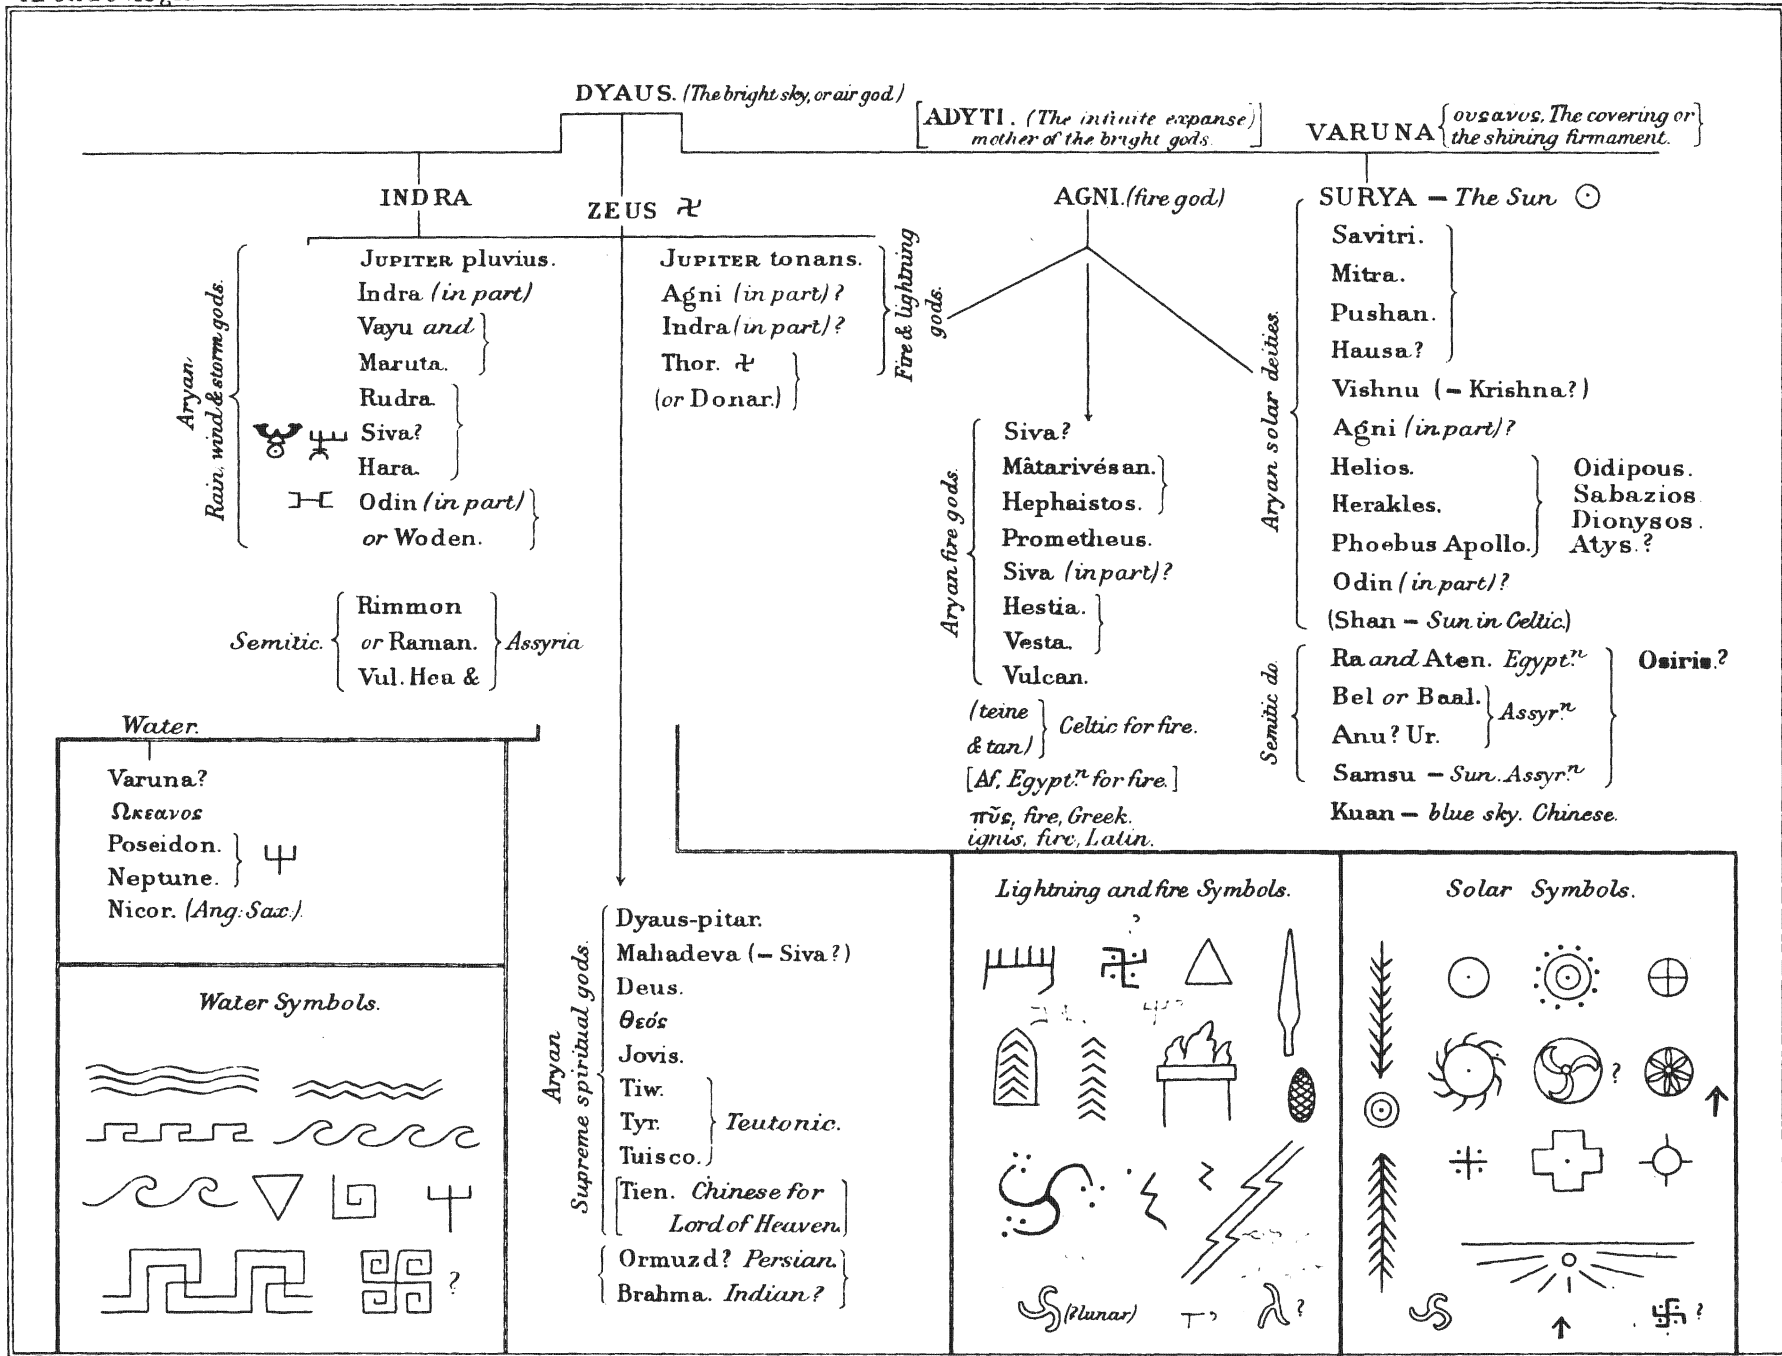 DYAUS. (The bright sky, or air god.)
[ADYTI. (The infinite expanse)
mother of the bright gods.]
VARUNA {ουσανυς, The covering or
the shining firmament.}
INDRA
ZEUS 卍
AGNI. (fire god)
SURYA – The Sun ☉
Aryan
Rain, wind & storm gods.
JUPITER pluvius.
Indra (in part)
Vayu and
Maruta.
Rudra.
Siva?
Hara.
Odin (in part)
or Woden.
JUPITER tonans.
Agni (in part)?
Indra (in part)?
Thor. 卍
(or Donar.)
Fire & lightning
gods.
Semitic.
Rimmon
or Raman.
Vul. Hea &
Assyria
Aryan fire gods.
Siva?
Mâtarivésan.
Hephaistos.
Prometheus.
Siva (in part)?
Hestia.
Vesta.
Vulcan.
(teine
& tan)
Celtic for fire.
[Af, Egypt.n for fire.]
πῦς, fire, Greek.
ignis, fire, Latin.
Aryan solar deities.
Savitri.
Mitra.
Pushan.
Hausa?
Vishnu (– Krishna?)
Agni (in part)?
Helios.
Herakles.
Phoebus Apollo.
Oidipous.
Sabazios.
Dionysos.
Atys.?
Odin (in part)?
(Shan – Sun in Celtic.)
Semitic do.
Ra and Aten. Egypt.n
Osiris.?
Bel or Baal.
Anu? Ur.
Assyr.n
Samsu – Sun. Assyr.n
Kuan – blue sky. Chinese.
Water.
Varuna?
Ωκεανος
Poseidon.
Neptune.
Nicor. (Ang: Sax:).
Water Symbols.
?
Aryan
Supreme spiritual gods.
Dyaus-pitar.
Mahadeva (– Siva?)
Deus.
θεός
Jovis.
Tiw.
Tyr.
Tuisco.
Teutonic.
[Tien. Chinese for
Lord of Heaven.]
Ormuzd? Persian.
Brahma. Indian?
Lightning and fire Symbols.
?
(?lunar)
?
Solar Symbols.
?
?